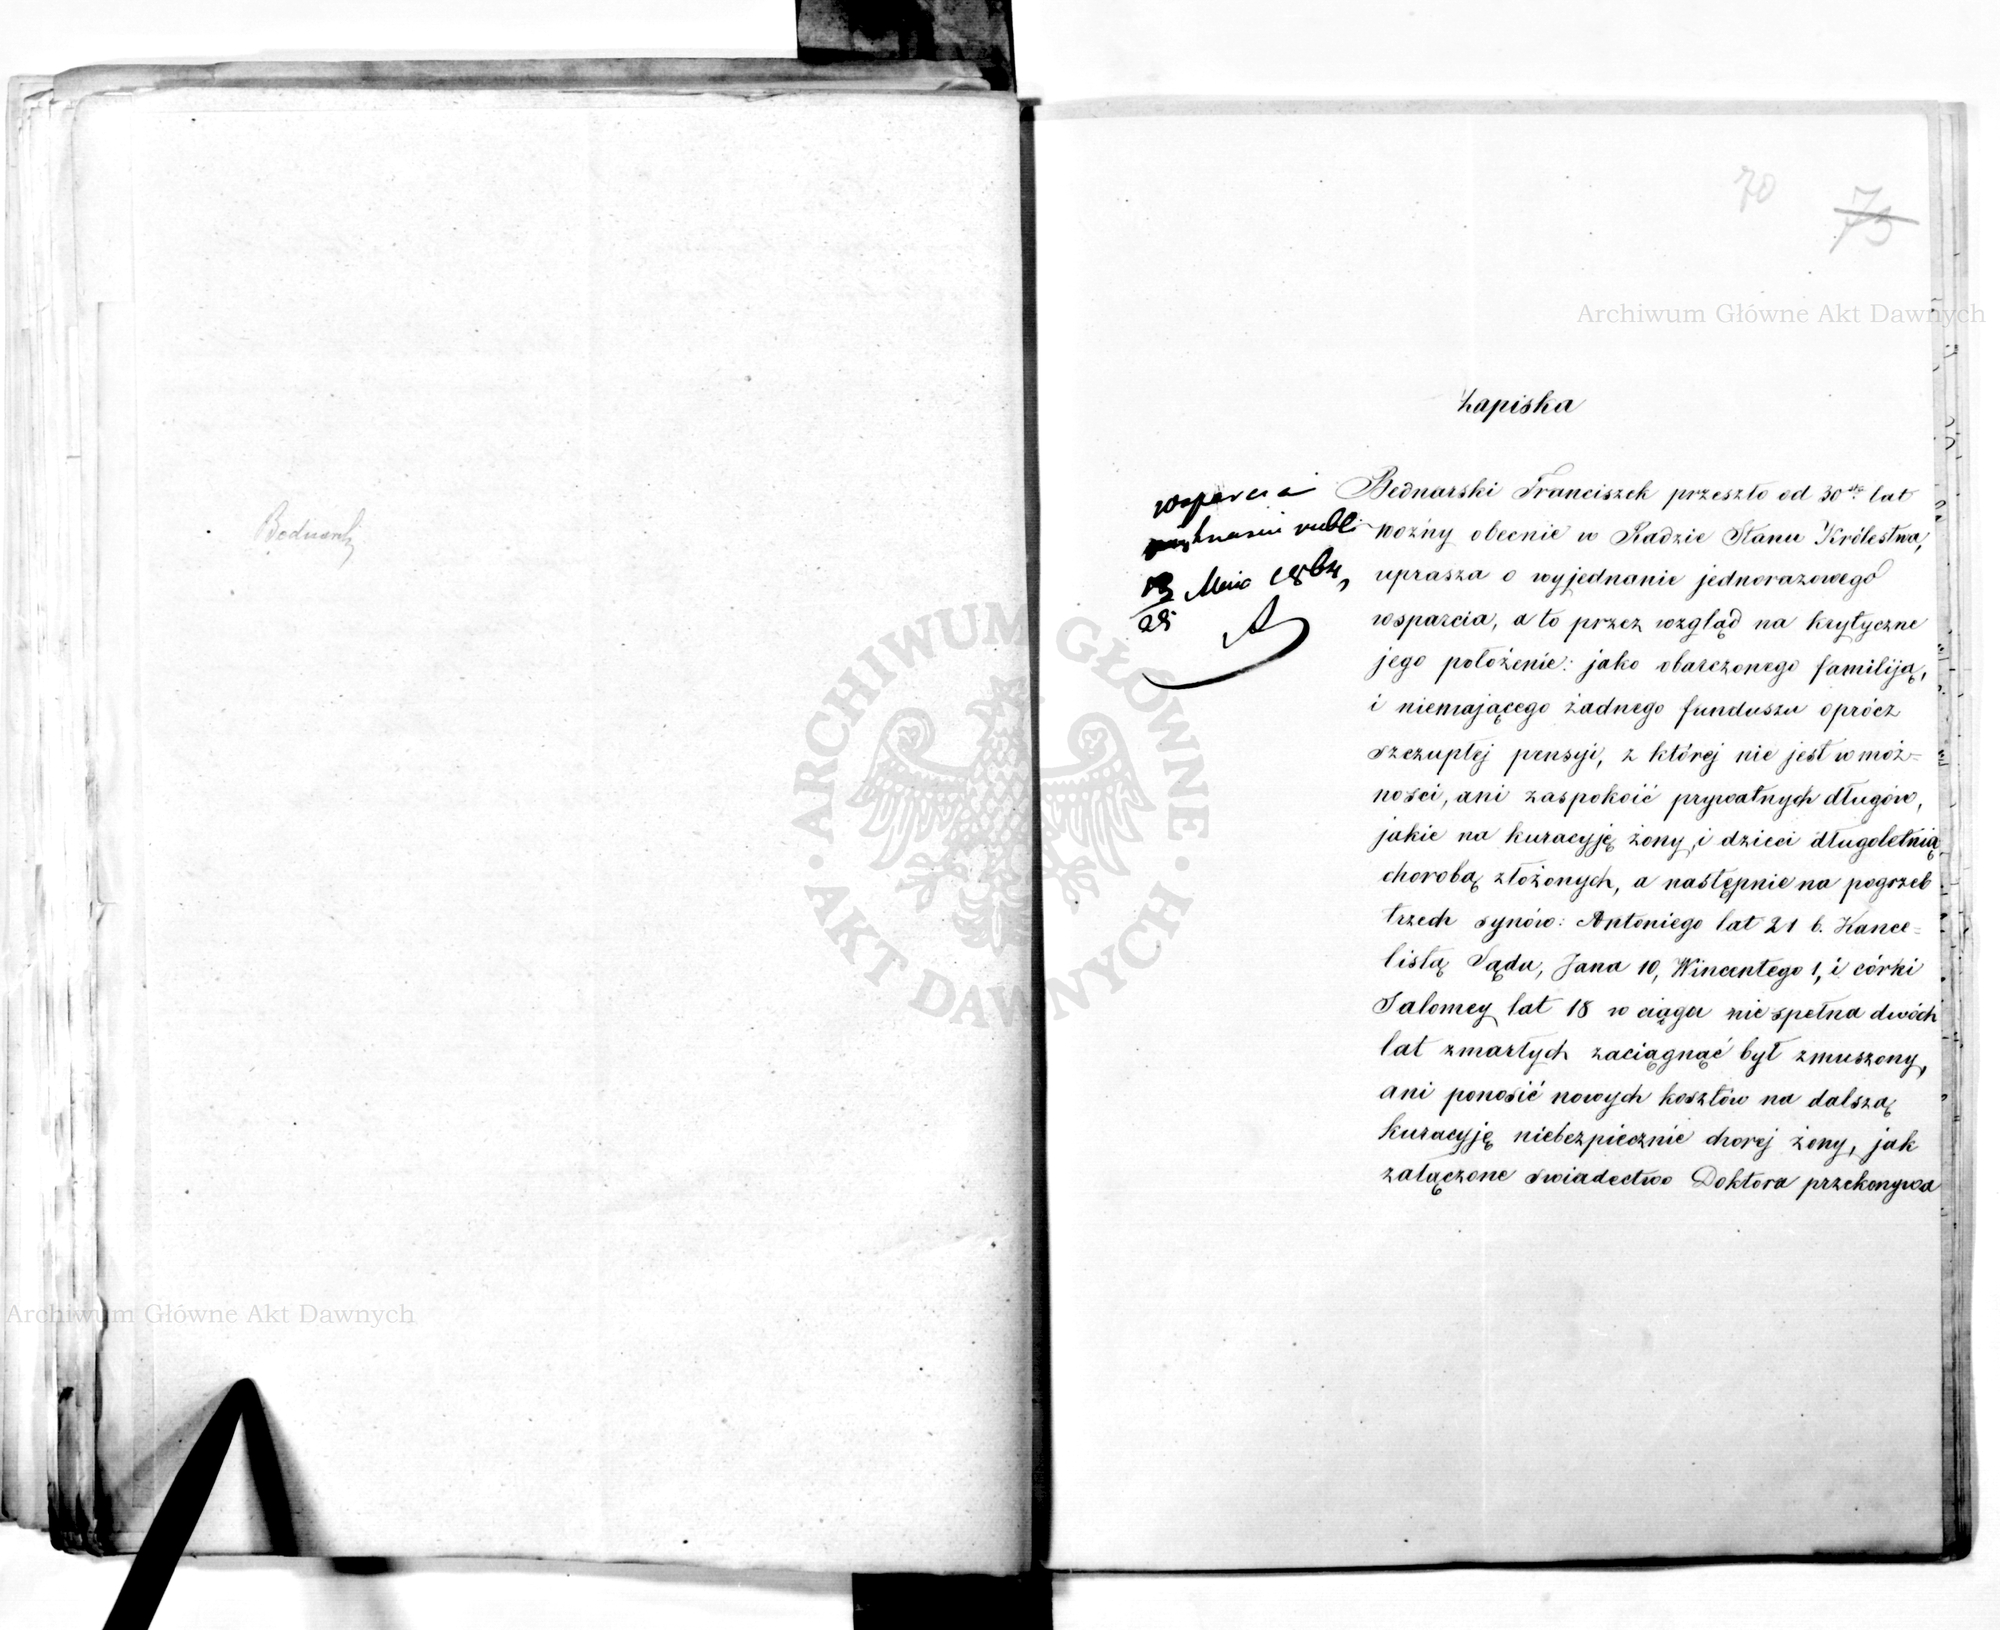 70
75
Zapiska
wsparcia
rubli
13 Maia 1864,
25
Bednarski Franciszek przeszło od 30stu lat
woźny obecnie w Radzie Stanu Królestwa,
uprasza o wyjednanie jednorazowego
wsparcia, a to przez wzgląd na krytyczne
jego położenie: jako obarczonego familiją,
i niemającego żadnego funduszu oprócz
szczupłej pensyi, z której nie jest w moż=
ności, ani zaspokoić prywatnych długów,
jakie na kuracyję żony, i dzieci długoletnią
chorobą złożonych, a następnie na pogrzeb
trzech synów: Antoniego lat 21 b. Kance=
listą Sądu, Jana 10, Wincentego 1, i córki
Salomey lat 18 w ciągu nie spełna dwóch
lat zmarłych zaciągnąć był zmuszony,
ani ponosić nowych kosztów na dalszą
kuracyję niebezpiecznie chorej żony, jak
załączone swiadectwo Doktora przekonywa
Archiwum Główne Akt Dawnych
Archiwum Główne Akt Dawnych
ARCHIWUM GŁÓWNE · AKT DAWNYCH ·